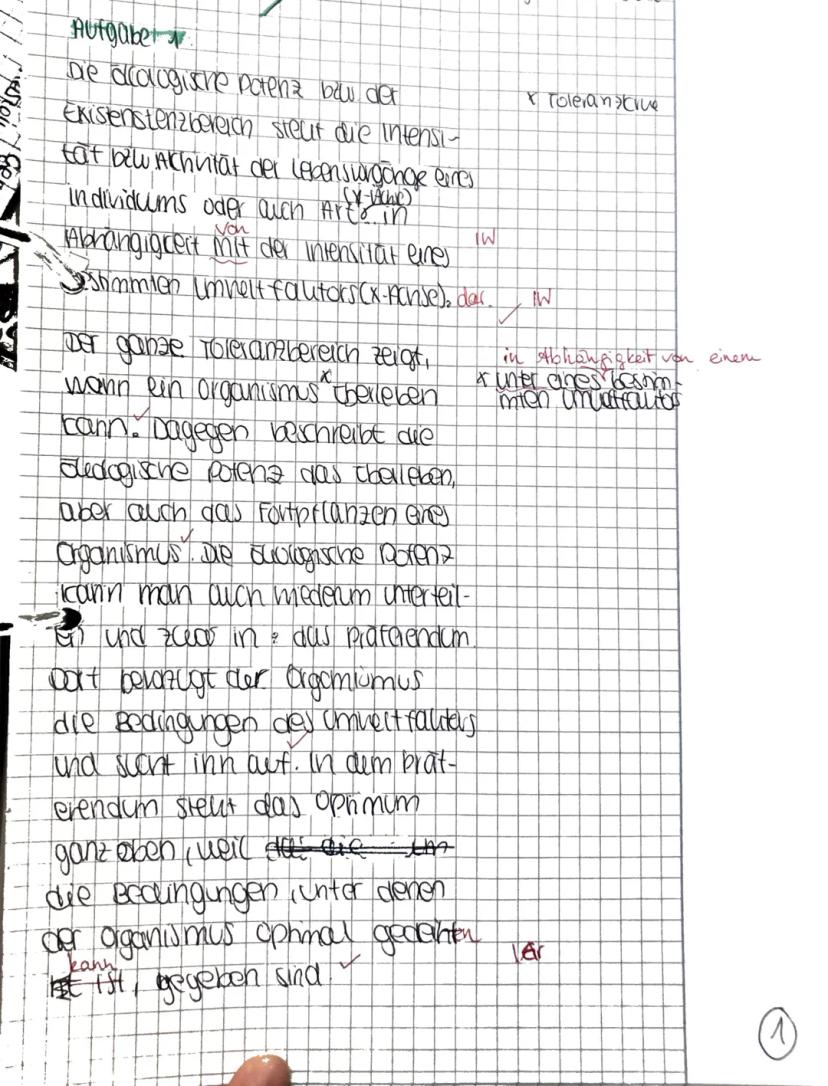 Aufgabe 1
Die ökologische Potenz bzw der
x Toleranzkurve
Existenstenzbereich stellt die Intensi-
tät bzw Aktivität der Lebensvorgänge eines
(Y-Achse)
individums oder auch Art in
von
Abhängigkeit mit der Intensität eines
IW
bestimmten Umweltfaktors (x-Achse), dar.
IW
Der ganze Toleranzbereich zeigt,
in Abhängigkeit von einem
wann ein Organismus x überleben
x unter eines bestim-
mten Umweltfaktos
kann. Dagegen beschreibt die
ökologische Potenz das überleben,
aber auch das Fortpflanzen eines
Organismus. Die ökologische Potenz
kann man auch wiederum unterteil-
en und zwar in: das Präferendum.
Dort bevorzugt der Organismus
die Bedingungen des Umweltfaktors
und sucht inn auf. In dem Präf-
erendum stellt das Optimum
ganz oben, weil
die Bedingungen, unter denen
der Organismus optimal gedeihen
kann
ist, gegeben sind.
Gr
1